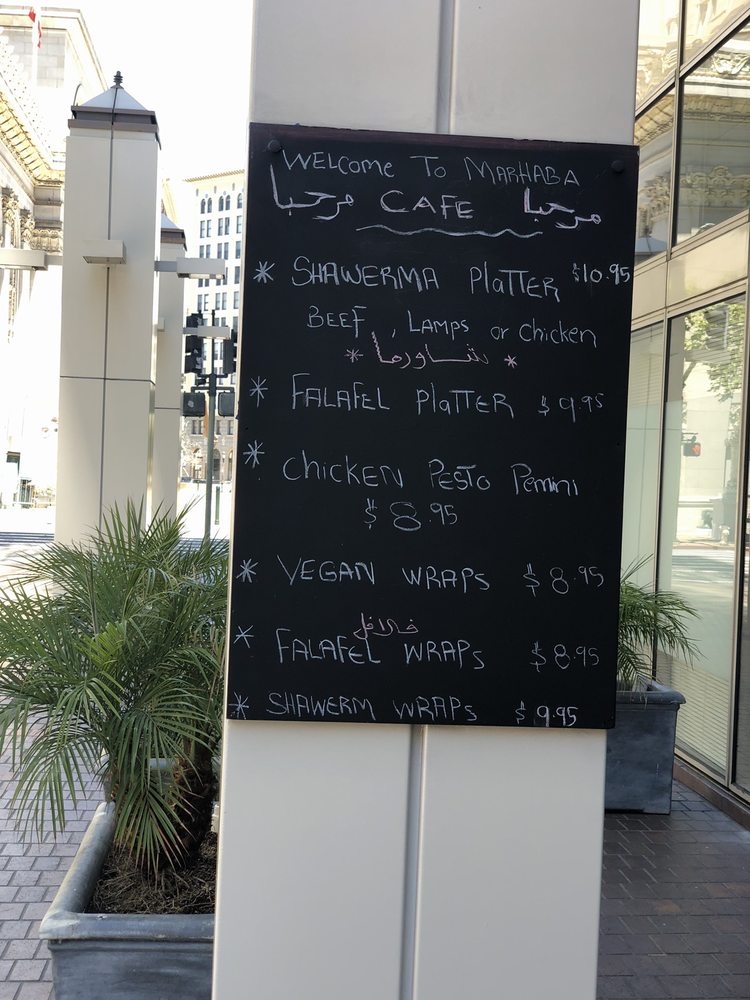 WELCOME TO MARHABA
مرحبا CAFE مرحبا
* SHAWERMA PlATTER $10.95
BEEF, LAMPS or chicken
* شاورما *
* FALAFEL PlATTER $9.95
* CHICKEN PESTO Pemini
$8.95
* VEGAN WRAPS $8.95
فلافل
* FALAFEL WRAPS $8.95
* SHAWERM WRAPS $9.95